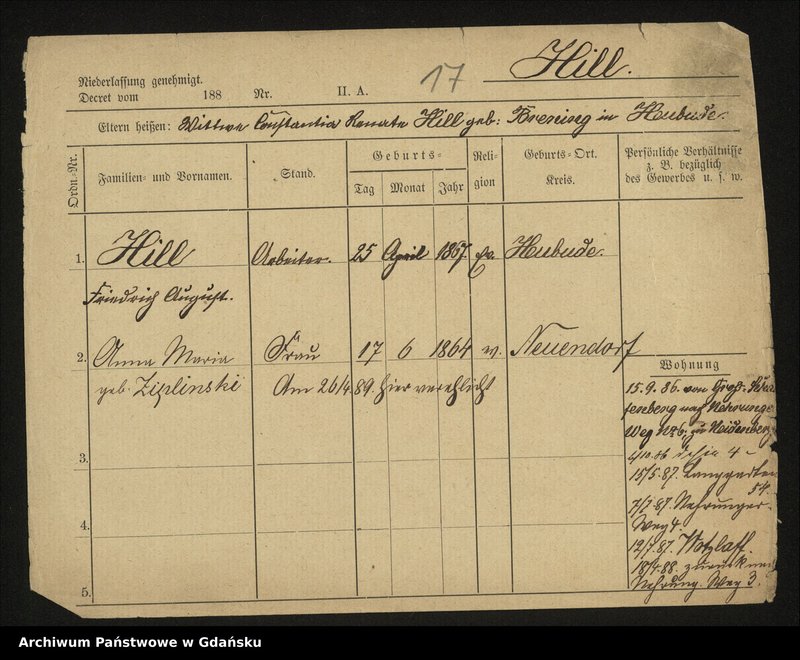 Niederlassung genehmigt.
Decret vom 188 Nr. II. A. 17 Hill.
Eltern heißen: Wittwe Constantia Renate Hill geb: Brening in Heubude.
Ordn.-Nr. Familien- und Vornamen. Stand. Geburts- Reli-gion Geburts-Ort. Kreis. Persönliche Verhältnisse z. B. bezüglich des Gewerbes u. s. w.
Tag Monat Jahr
1. Hill Arbeiter. 25 April 1867. ev. Heubude.
Friedrich August.
2. Anna Maria Frau 17 6 1864 Neuendorf
geb. Ziplinski Am 26/4.89. hier verehlicht
Wohnung
15.9.86. von Groß-
nach Nehrunger
Weg No 6, zu Heidenberg
4/10.86 4
15/5.87. Langgarten
54.
7/7.87. Nehrunger-
Weg 4.
12/7.87. Wotzlaff.
18/4.88. zurück nach
Nehrung. Weg 3.
3.
4.
5.
Archiwum Państwowe w Gdańsku